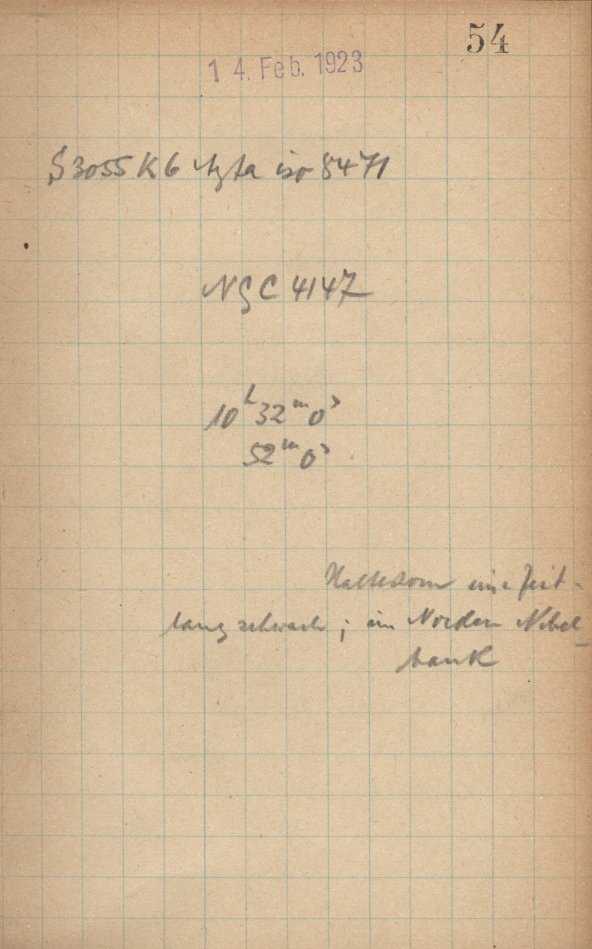 54
14. Feb. 1923
S 3055 K 6 Agfa iso 8471
NGC 4147
10h 32m 0s
52m 0s
Haltestern eine Zeit-
lang schwach; im Norden Nebel-
bank